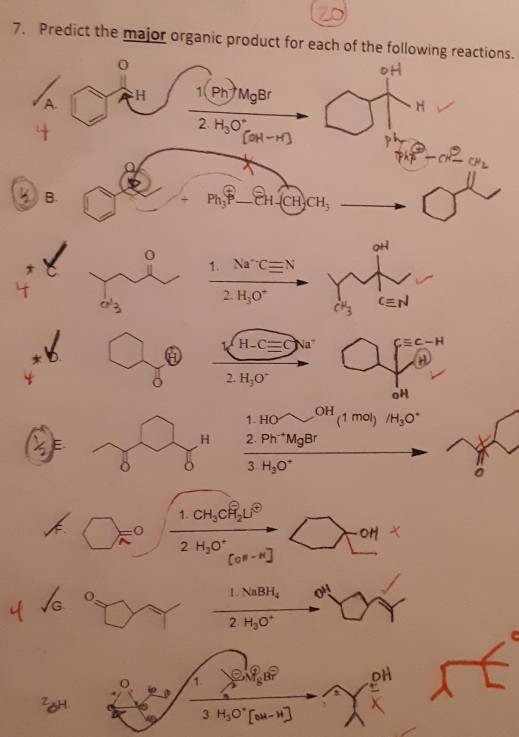 20
7. Predict the major organic product for each of the following reactions.
A. 4
O
H
1. Ph⁻⁺MgBr
2. H₃O⁺
[OH-H]
OH
H
Ph
B. ½
O
+ Ph₃P⊕—⊖CH-CH₂CH₃
CH₂
* C. 4
O
CH₃
1. Na⁺⁻C≡N
2. H₃O⁺
OH
CH₃
C≡N
* D. 4
H
O
1. H-C≡C⁻Na⁺
2. H₃O⁺
C≡C-H
H
OH
E. ½
O
H
O
1. HO OH (1 mol) /H₃O⁺
2. Ph⁻⁺MgBr
3. H₃O⁺
O
F.
=O
1. CH₃CH₂Li⊕
2. H₃O⁺
[OH-H]
-OH x
4 G.
O
1. NaBH₄
2. H₃O⁺
OH
H.
O
1. ⊖⊕MgBr
3. H₃O⁺ [OH-H]
OH
x